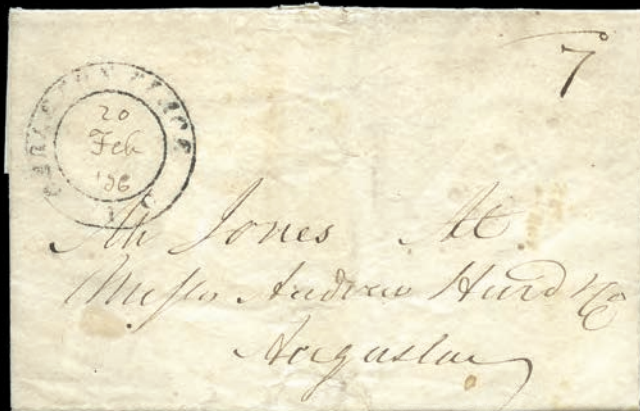 7
CARLETON PLACE
20
Feb
'36
U C
Mr Jones At
Messrs Andrew Hurd & Co
Augusta